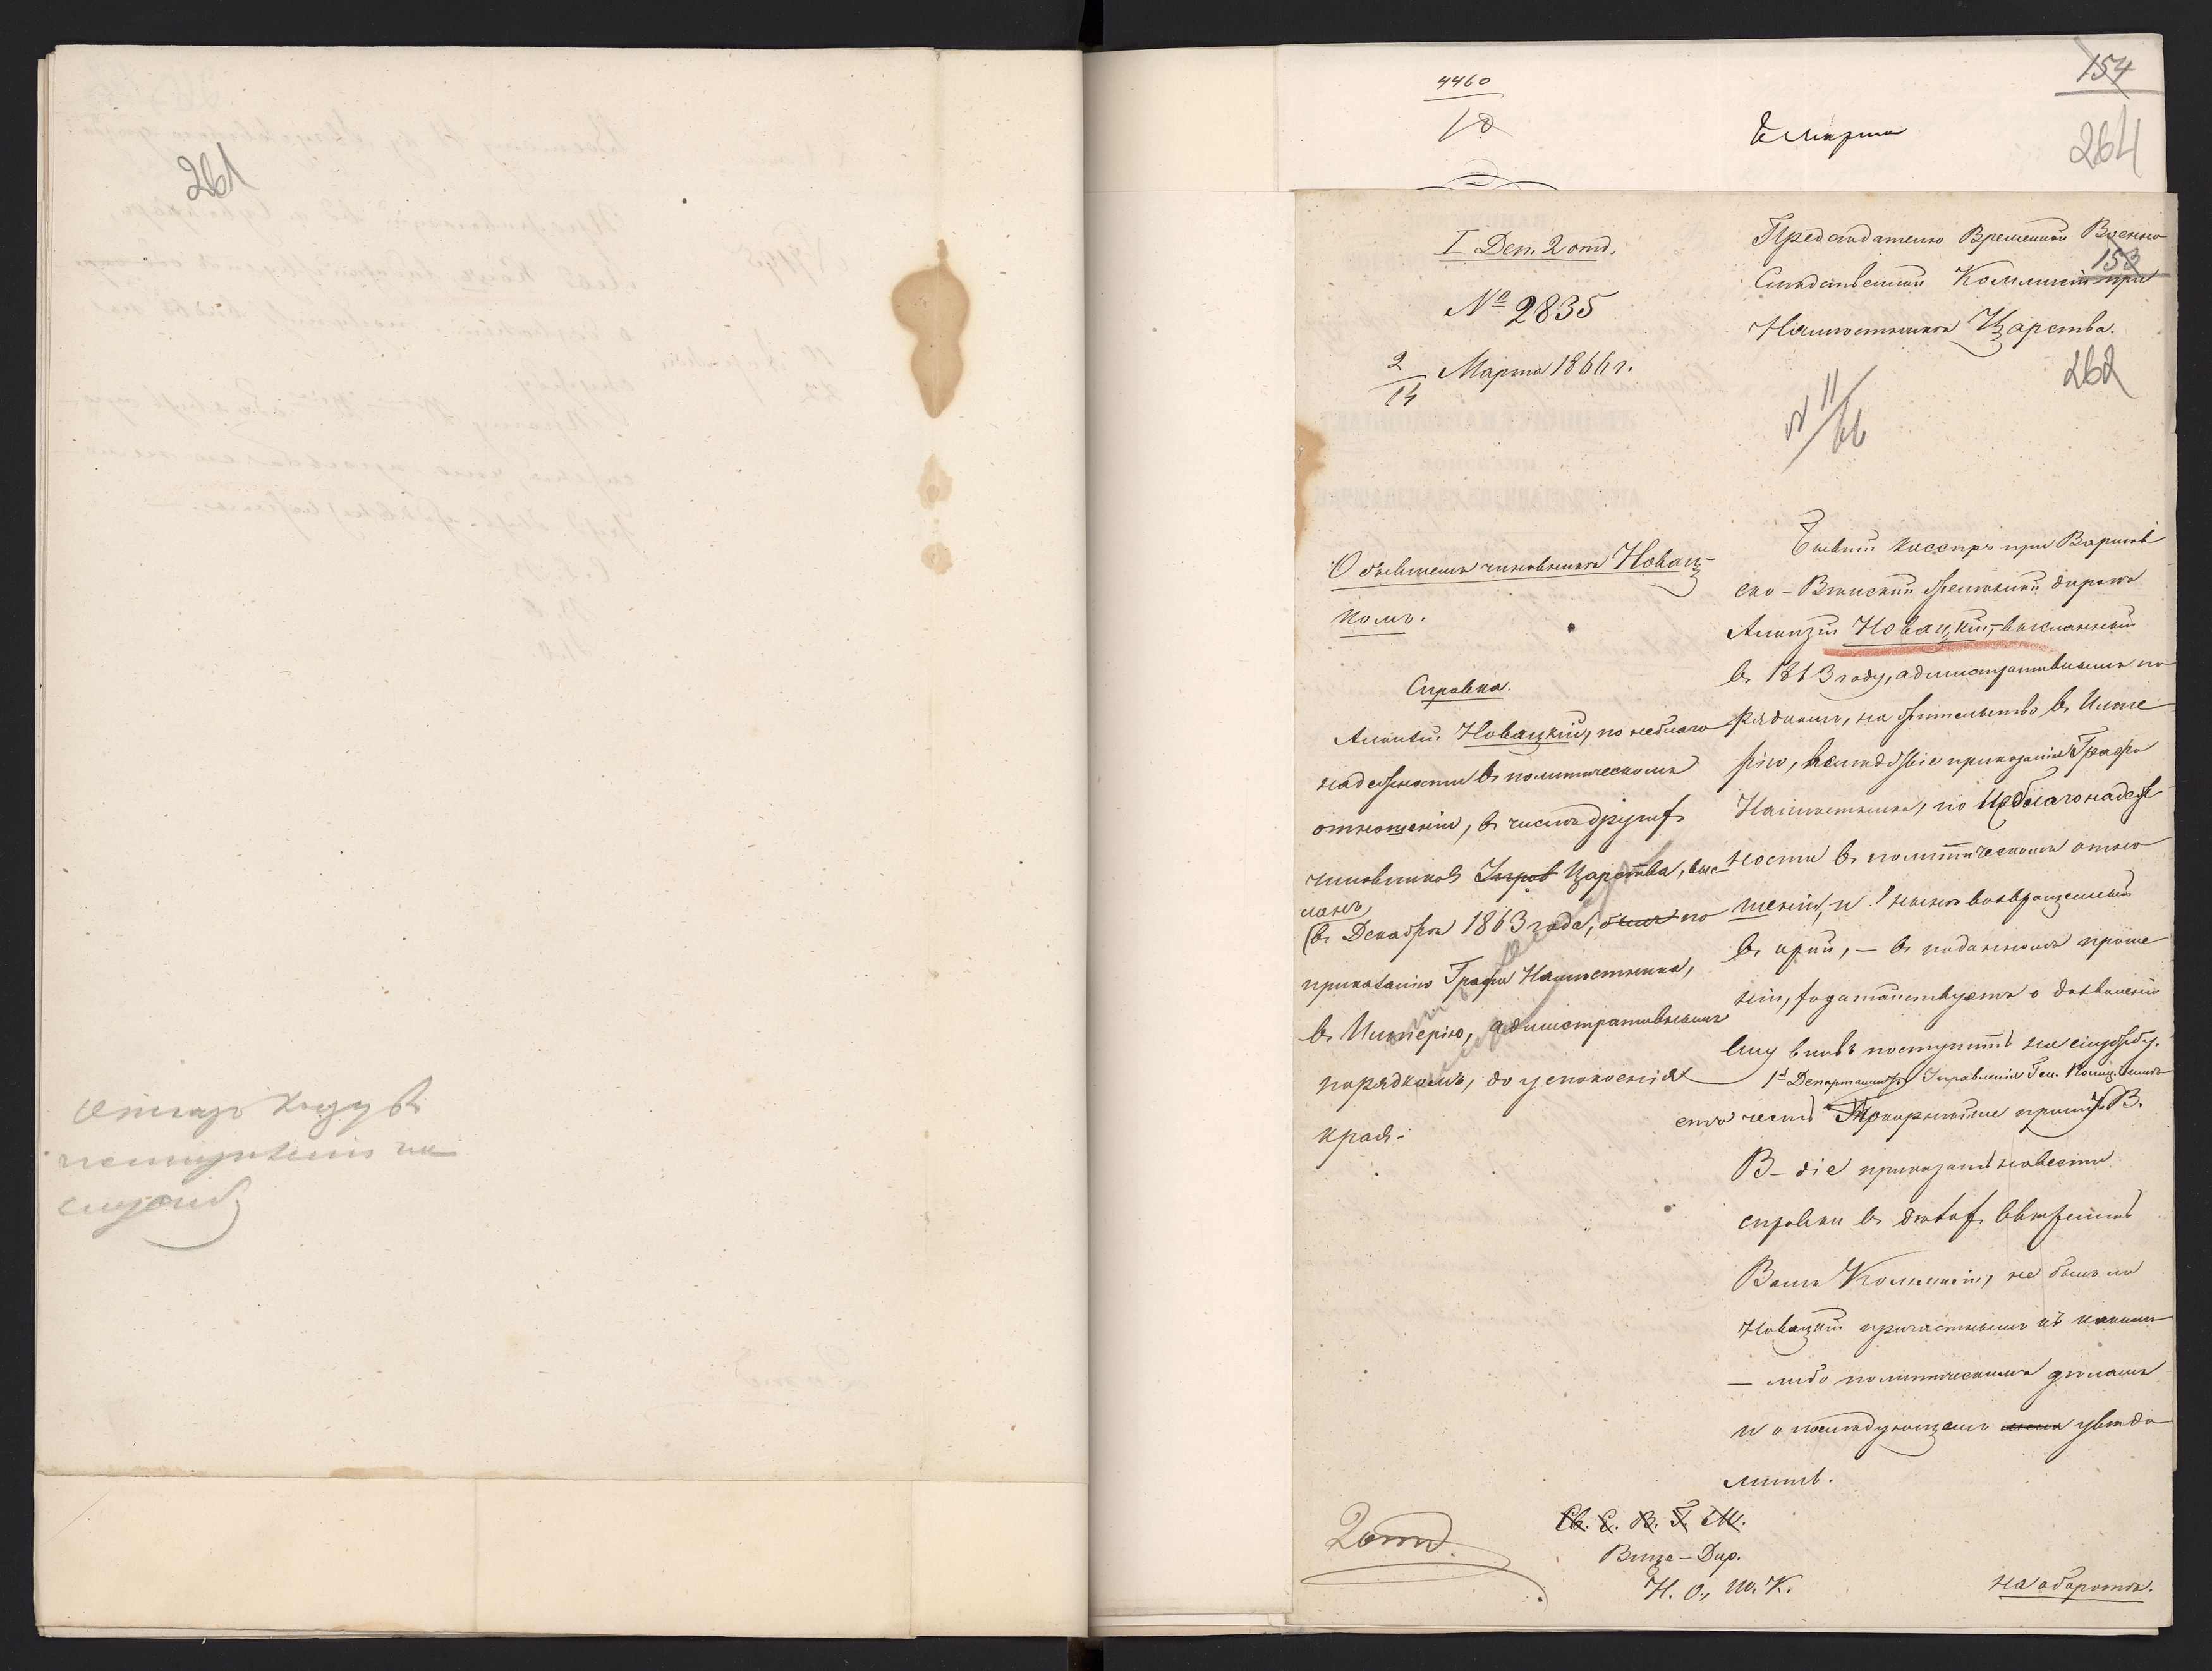 261
отказъ
на
службу
4460
18
Марта
154
264
I Деп. 2 отд.
№ 2835
2/14 Марта 1866 г.
О бывшемъ чиновникѣ Новац-
комъ.
Справка.
Новацкій, по неблаго
надежности въ политическомъ
отношеніи, въ числѣ другихъ
чиновниковъ Царства, выс
ланъ
въ Декабрѣ 1863 года, былъ по
приказанію Графа Намѣстника,
въ Имперію, административнымъ
порядкомъ, до успокоенія
края.
2 отд.
Предсѣдателю Временной Военно
153
Слѣдственной Коммисіи при
Намѣстникѣ Царства.
262
№ 11/66
Бывшій кассиръ при Варшав
ско-Вѣнской желѣзной дорогѣ
Новацкій, высланный
въ 1863 году, административнымъ по
рядкомъ, на жительство въ Импе
рію, вслѣдствіе приказанія Графа
Намѣстника, по неблагонадеж
ности въ политическомъ отно
шеніи, и нынѣ возвращенный
въ край, — въ поданномъ проше
ніи, ходатайствуетъ о дозволеніи
ему вновь поступить на службу.
1й Департаментъ Управленія Ген. Полиціймей
стера честь имѣетъ просить В.
В–діе приказать навести
справки въ дѣлахъ ввѣренной
Вамъ Коммисіи, не былъ ли
Новацкій причастнымъ къ какимъ
— либо политическимъ дѣламъ
и о послѣдующемъ меня увѣдо
мить.
Св. Е. В. Г. М.
Вице-Дир.
Н. О., Ю. К.
на оборотѣ.